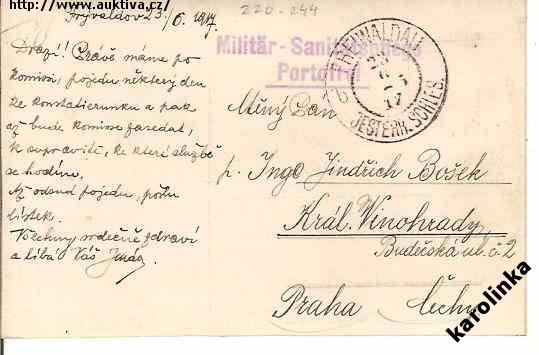 http://www.auktiva.cz/
Frývaldov 23./6. 1917.
220-244
Drazí! Právě máme po
komisi, pojedu některý den
ke konstatierunku a pak
až bude komise zasedat,
k superavisitě, ke které službě
se hodím.
Až odsud pojedu, pošlu
lístek.
Všechny srdečně zdraví
a líbá Váš
Militär-Sanitätspflege
Portofrei
FREIWALDAU
23
17
b
OESTERR. SCHLES.
Ctěný Pan
p. Ing. Jindřich Bošek
Král. Vinohrady
Budečská ul. č. 2
Praha Čechy
karolinka